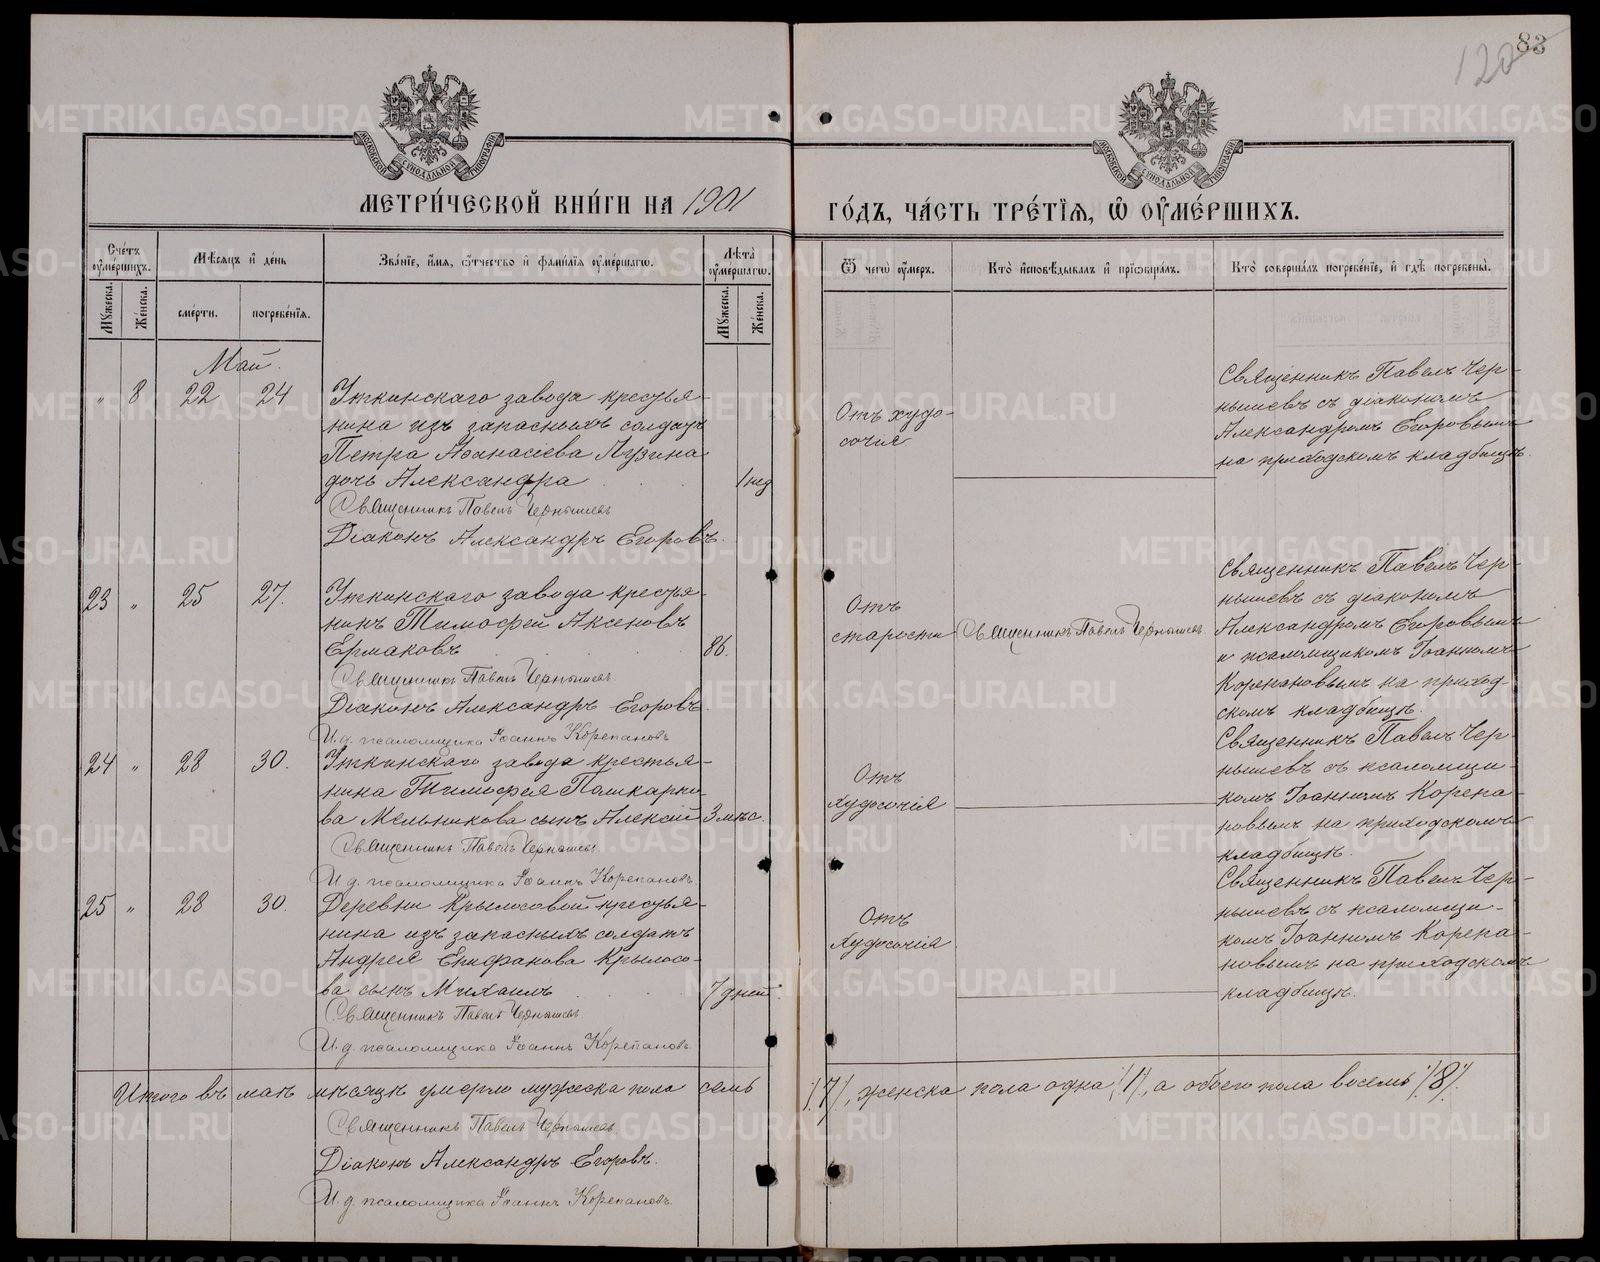 83
120
МОСКОВСКОЙ СѴНОДАЛЬНОЙ ТИПОГРАФІИ
МОСКОВСКОЙ СѴНОДАЛЬНОЙ ТИПОГРАФІИ
МЕТРИ́ЧЕСКОЙ КНИ́ГИ НА 1901
ГО́ДЪ, ЧА́СТЬ ТРЕ́ТІѦ, Ѡ҆ ОУ҆МЕ́РШИХЪ.
Сче́тъ оу҆ме́ршихъ.
Мꙋ́жеска.
Же́нска.
Мѣ́сяцъ и҆ де́нь
сме́рти.
погребе́нїѧ.
Зва́нїе, и҆́мя, ѻ҆́тчество и҆ фами́лїя оу҆ме́ршагѡ.
Лѣ́та оу҆ме́ршагѡ.
Мꙋ́жеска.
Же́нска.
Ѿ чегѡ̀ оу҆́меръ.
Кто̀ и҆сповѣ́дывалъ и҆ прїѡбща́лъ.
Кто̀ соверша́лъ погребе́нїе, и҆ гдѣ̀ погребены̀.
Май.
" 8 22 24
Уткинскаго завода крестья-
нина изъ запасныхъ солдатъ
Петра Аѳанасіева Пузина
дочь Александра
1 нед
Священникъ Павелъ Чернышевъ
Діаконъ Александръ Егоровъ.
Отъ худо-
сочія
Священникъ Павелъ Чер-
нышевъ съ діакономъ
Александромъ Егоровымъ
на приходскомъ кладбищѣ.
23 " 25 27.
Уткинскаго завода крестья-
нинъ Тимофей Аксеновъ
Ермаковъ
86.
Священникъ Павелъ Чернышевъ
Діаконъ Александръ Егоровъ.
И. д. псаломщика Іоаннъ Корепановъ
Отъ
старости
Священникъ Павелъ Чернышевъ
Священникъ Павелъ Чер-
нышевъ съ діакономъ
Александромъ Егоровымъ
и псаломщикомъ Іоанномъ
Корепановымъ на приход-
скомъ кладбищѣ.
24 " 28 30.
Уткинскаго завода крестья-
нина Тимофея
ва Мельникова сынъ Алексій
3 мѣс.
Священникъ Павелъ Чернышевъ
И. д. псаломщика Іоаннъ Корепановъ
Отъ
худосочія
Священникъ Павелъ Чер-
нышевъ съ псаломщи-
комъ Іоанномъ Корепа-
новымъ на приходскомъ
кладбищѣ.
25 " 28 30.
Деревни Крылосовой крестья-
нина изъ запасныхъ солдатъ
Андрея Епифанова Крылосо-
ва сынъ Михаилъ
7 дней
Священникъ Павелъ Чернышевъ
И. д. псаломщика Іоаннъ Корепановъ
Отъ
худосочія
Священникъ Павелъ Чер-
нышевъ съ псаломщи-
комъ Іоанномъ Корепа-
новымъ на приходскомъ
кладбищѣ.
Итого въ маѣ мѣсяцѣ умерло мужеска пола семь /7/, женска пола одна /1/, а обоего пола восемь /8/.
Священникъ Павелъ Чернышевъ
Діаконъ Александръ Егоровъ.
И. д. псаломщика Іоаннъ Корепановъ.
METRIKI.GASO-URAL.RU